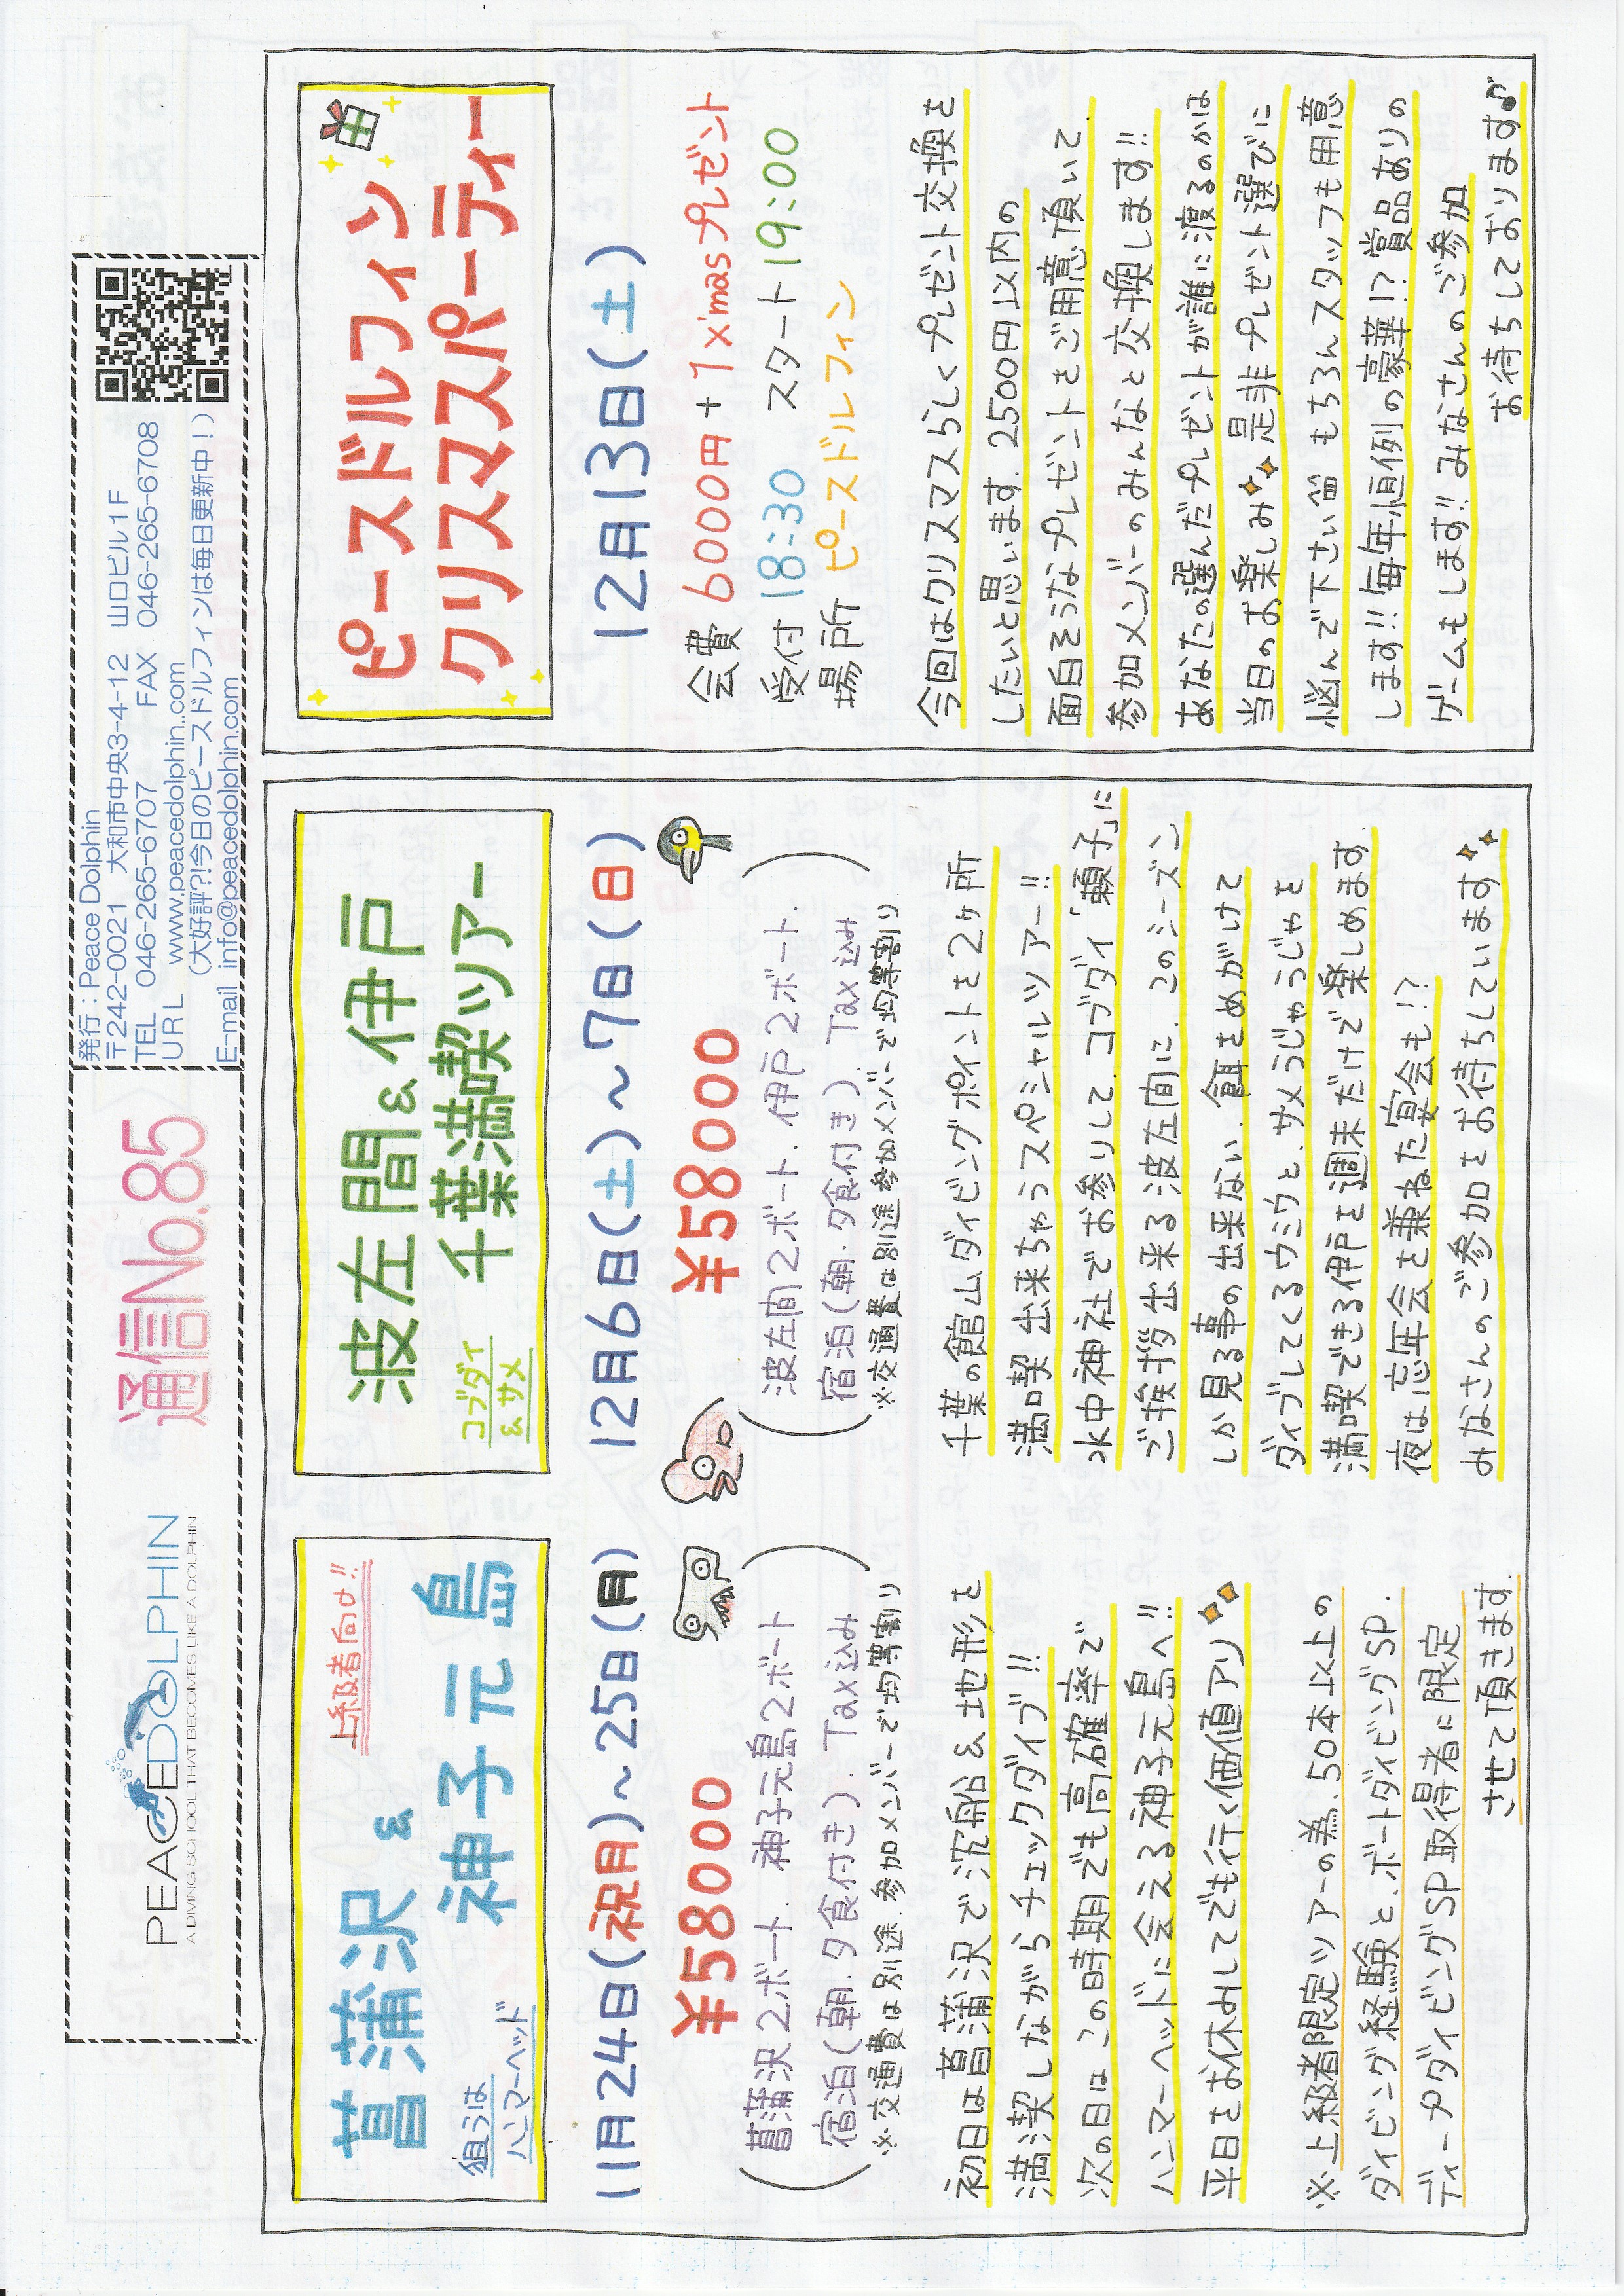 PEACEDOLPHIN
A DIVING SCHOOL THAT BECOMES LIKE A DOLPHIN
通信No.85
発行：Peace Dolphin
〒242-0021　大和市中央3-4-12　山口ビル1F
TEL　046-265-6707　　FAX　046-265-6708
URL　www.peacedolphin.com
（大好評?!今日のピースドルフィンは毎日更新中！）
E-mail info@peacedolphin.com
上級者向け!!
菖蒲沢 &
神子元島
狙うは
ハンマーヘッド
11月24日(祝月)～25日(月)
¥58000
菖蒲沢2ボート. 神子元島2ボート
宿泊(朝.夕食付き). Tax込み
※交通費は別途.参加メンバーで均等割り
初日は菖蒲沢で沈船&地形を
満喫しながらチェックダイブ!!
次の日はこの時期でも高確率で
ハンマーヘッドに会える神子元島へ!!
平日をお休みしてでも行く価値アリ
※上級者限定ツアーの為.50本以上の
ダイビング経験と.ボートダイビングSP.
ディープダイビングSP取得者に限定
させて頂きます.
波左間&伊戸
千葉満喫ツアー
コブダイ
&サメ
12月6日(土)～7日(日)
¥58000
波左間2ボート.伊戸2ボート.
宿泊(朝.夕食付き). Tax込み
※交通費は別途参加メンバーで均等割り
千葉の館山ダイビングポイントを2ヶ所
満喫出来ちゃうスペシャルツアー!!
水中神社でお参りして.コブダイ「頼子」に
ご挨拶出来る波左間に.このシーズン
しか見る事の出来ない.餌をめがけて
ダイブしてくるウミウと.サメうじゃうじゃを
満喫できる伊戸を週末だけで楽しめます.
夜は忘年会と兼ねた宴会も!?
みなさんのご参加をお待ちしています
ピースドルフィン
クリスマスパーティー
12月13日(土)
会費 6000円+1X'masプレゼント
受付 18:30　スタート 19:00
場所 ピースドルフィン
今回はクリスマスらしくプレゼント交換を
したいと思います.2500円以内の
面白そうなプレゼントをご用意頂いて.
参加メンバーのみんなと交換します!!
あなたの選んだプレゼントが誰に渡るのかは
当日のお楽しみ 是非プレゼント選びに
悩んで下さい もちろんスタッフも用意
します!!毎年恒例の豪華!?賞品ありの
ゲームもします!!みなさんのご参加
お待ちしております♪